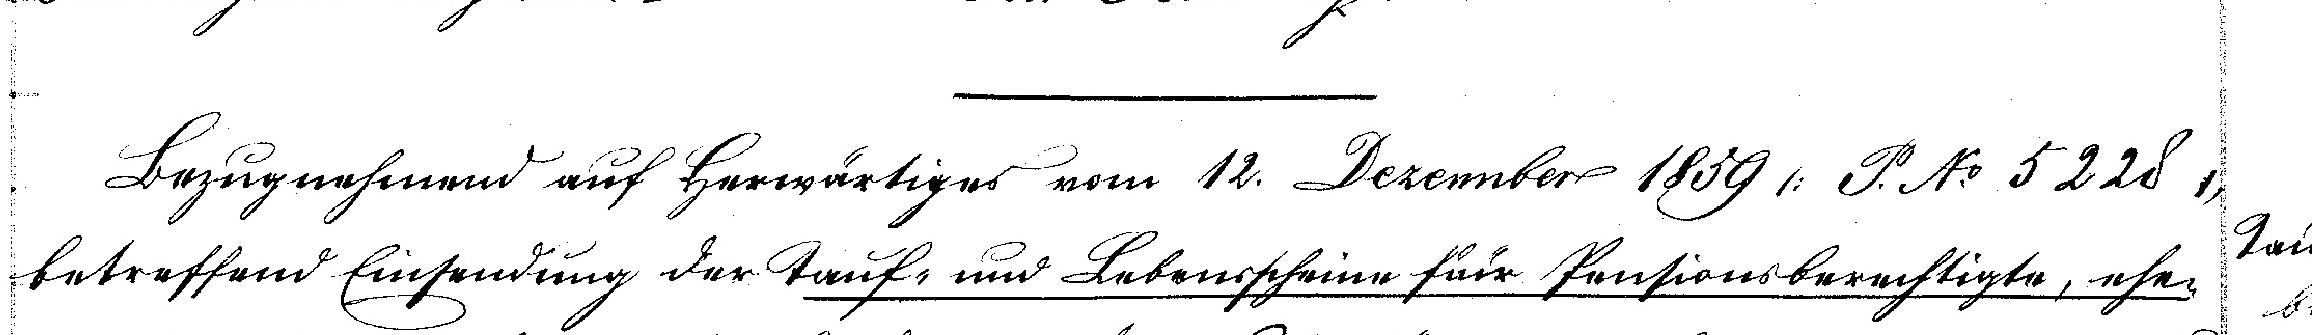 Bezugnehmend auf Herwärtiges vom 12. Dezember 1859 /: P. No 5228 :/,
betreffend Einsendung der Tauf- und Lebensscheine für Pensionsberechtigte, ehe-